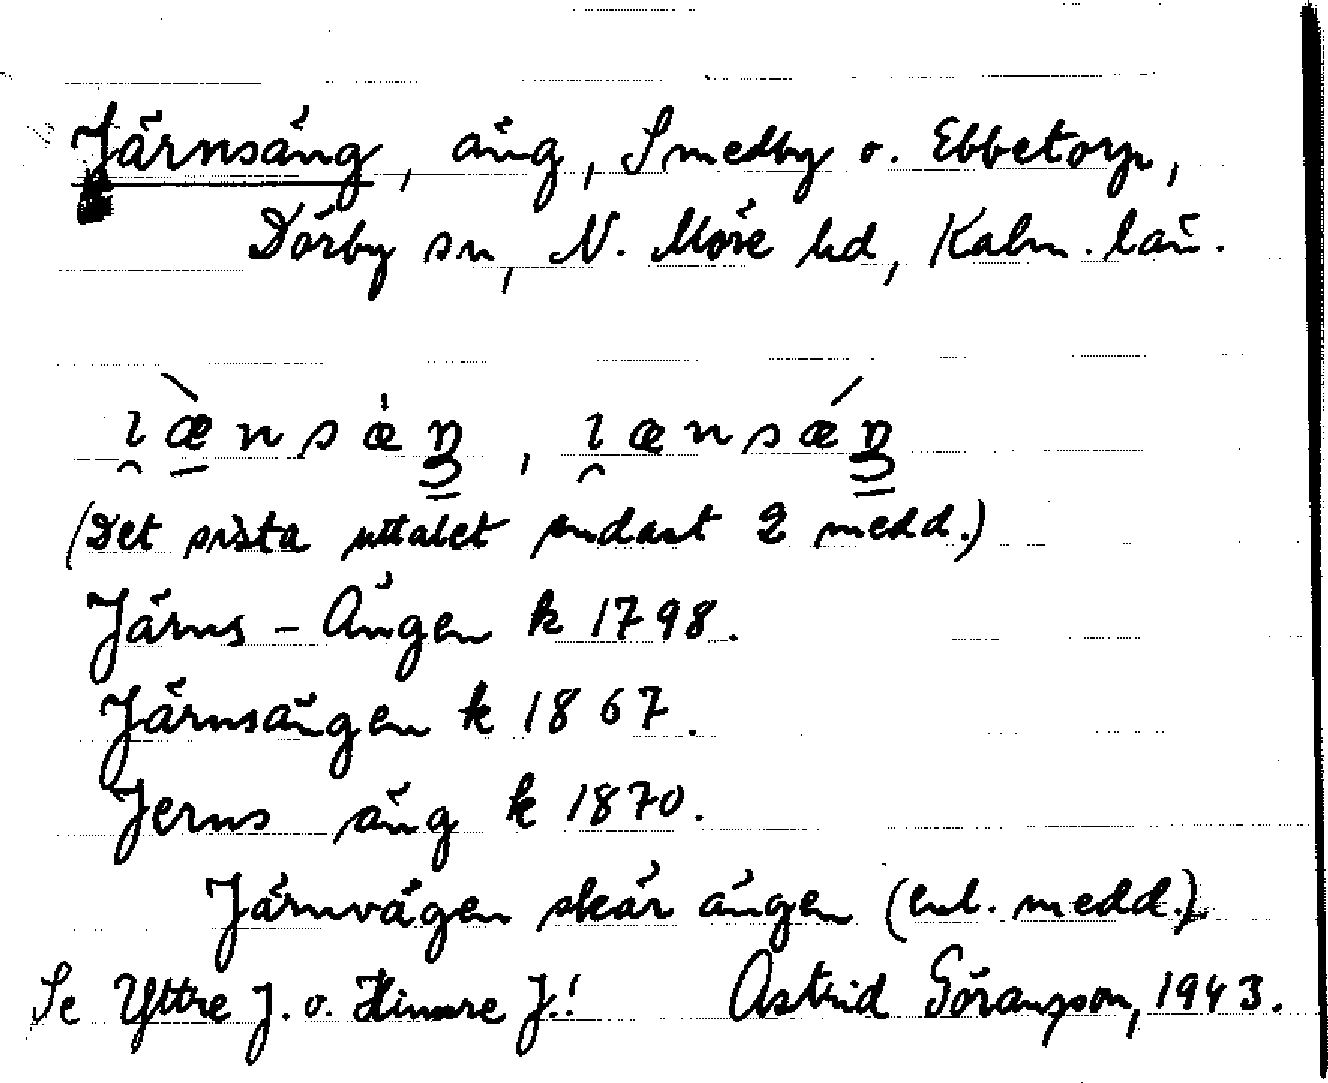 Järnsäng, äng, Smedby o. Ebbetorp,
Dörby sn, N. Möre hd, Kalm. län.
(Det sista uttalet endast 2 medd.)
Järns - Ängen k 1798.
Järnsängen k 1867.
Jerns äng k 1870.
Järnvägen skär ängen (enl. medd.)
Se Yttre J. o. Hinnre J.! Astrid Göransson, 1943.